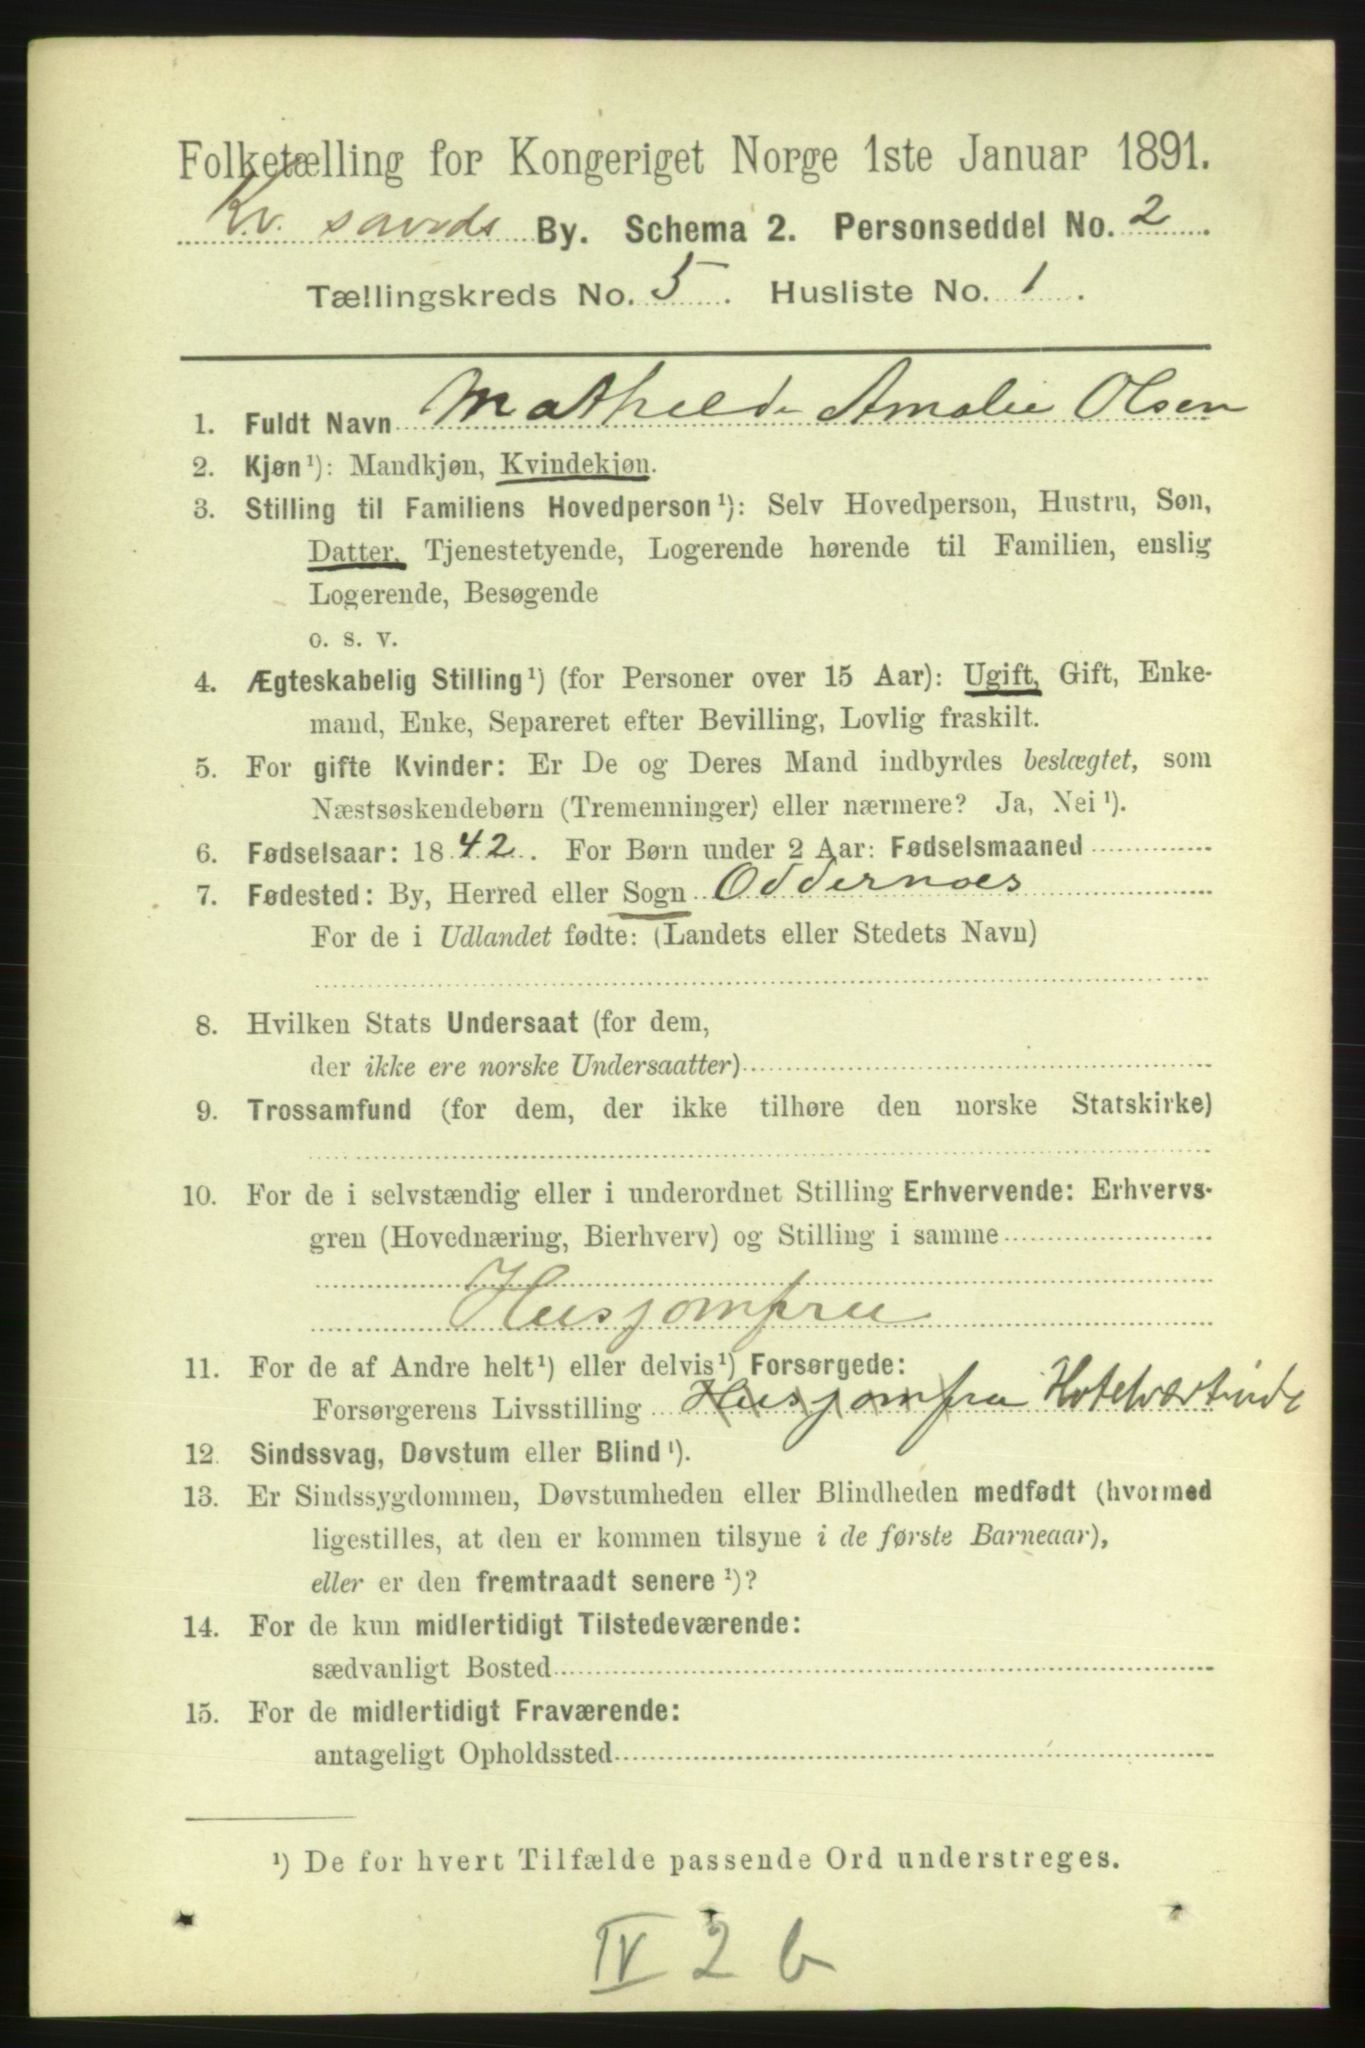 Folketælling for Kongeriget Norge 1ste Januar 1891.
Kr. sands By. Schema 2. Personseddel No. 2.
Tællingskreds No. 5. Husliste No. 1.
1. Fuldt Navn Mathilde Amalie Olsen
2. Kjøn¹): Mandkjøn, Kvindekjøn.
3. Stilling til Familiens Hovedperson¹): Selv Hovedperson, Hustru, Søn,
Datter, Tjenestetyende, Logerende hørende til Familien, enslig
Logerende, Besøgende
o. s. v.
4. Ægteskabelig Stilling¹) (for Personer over 15 Aar): Ugift, Gift, Enke-
mand, Enke, Separeret efter Bevilling, Lovlig fraskilt.
5. For gifte Kvinder: Er De og Deres Mand indbyrdes beslægtet, som
Næstsøskendebørn (Tremenninger) eller nærmere? Ja, Nei¹).
6. Fødselsaar: 1842. For Børn under 2 Aar: Fødselsmaaned
7. Fødested: By, Herred eller Sogn Oddernæs
For de i Udlandet fødte: (Landets eller Stedets Navn)
8. Hvilken Stats Undersaat (for dem,
der ikke ere norske Undersaatter)
9. Trossamfund (for dem, der ikke tilhøre den norske Statskirke)
10. For de i selvstændig eller i underordnet Stilling Erhvervende: Erhvervs-
gren (Hovednæring, Bierhverv) og Stilling i samme
Husjomfru
11. For de af Andre helt¹) eller delvis¹) Forsørgede:
Forsørgerens Livsstilling Husjomfru Hotelværtinde
12. Sindssvag, Døvstum eller Blind¹).
13. Er Sindssygdommen, Døvstumheden eller Blindheden medfødt (hvormed
ligestilles, at den er kommen tilsyne i de første Barneaar),
eller er den fremtraadt senere¹)?
14. For de kun midlertidigt Tilstedeværende:
sædvanligt Bosted
15. For de midlertidigt Fraværende:
antageligt Opholdssted
¹) De for hvert Tilfælde passende Ord understreges.
IV 2 b